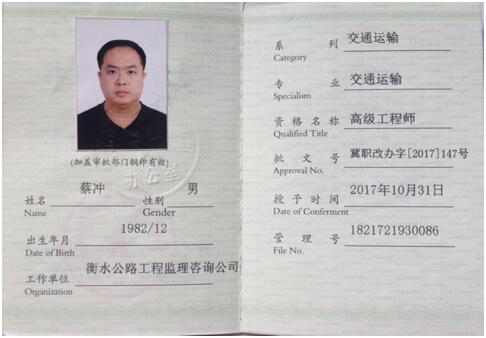 (加盖审批部门钢印有效)
办公室
姓名 蔡冲 性别 男
Name Gender
出生年月 1982/12
Date of Birth
工作单位 衡水公路工程监理咨询公司
Organization
系列 交通运输
Category
专业 交通运输
Specialism
资格名称 高级工程师
Qualified Title
批文号 冀职改办字[2017]147号
Approval No.
授予时间 2017年10月31日
Date of Conferment
管理号 1821721930086
File No.